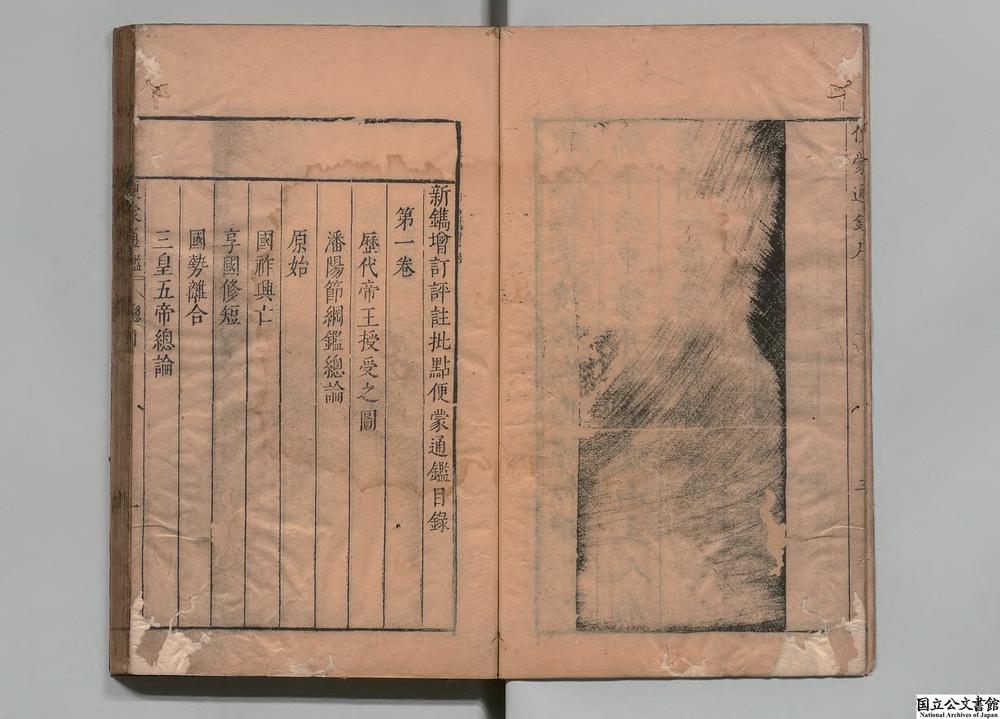 便蒙通鑑序
三
新鐫增訂評註批點便蒙通鑑目錄
第一卷
歷代帝王授受之圖
潘陽節綱鑑總論
原始
國祚興亡
享國修短
國勢離合
三皇五帝總論
便蒙通鑑
總目
一
国立公文書館
National Archives of Japan